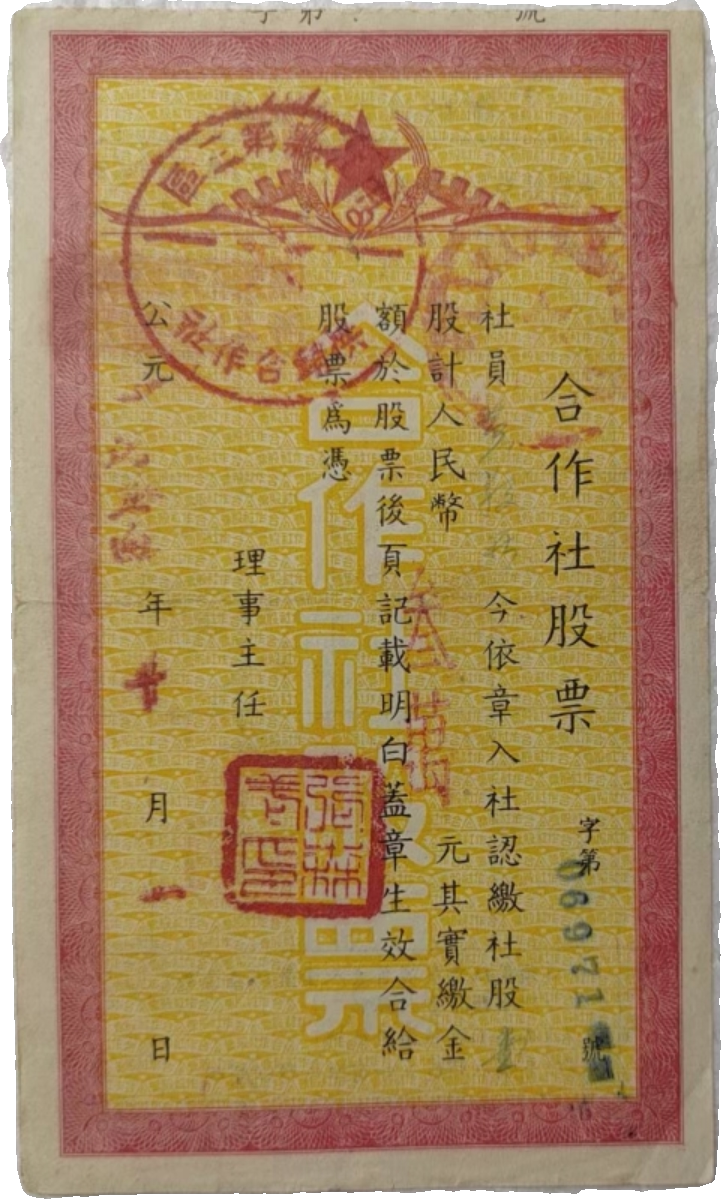 合作社股票
字第 069971 號
社員 今依章入社認繳社股 壹
股計人民幣 叁萬 元其實繳金
額於股票後頁記載明白蓋章生效合給
股票爲憑
理事主任
公元 年 十 月 一 日
第三區
合作社
合作社股票